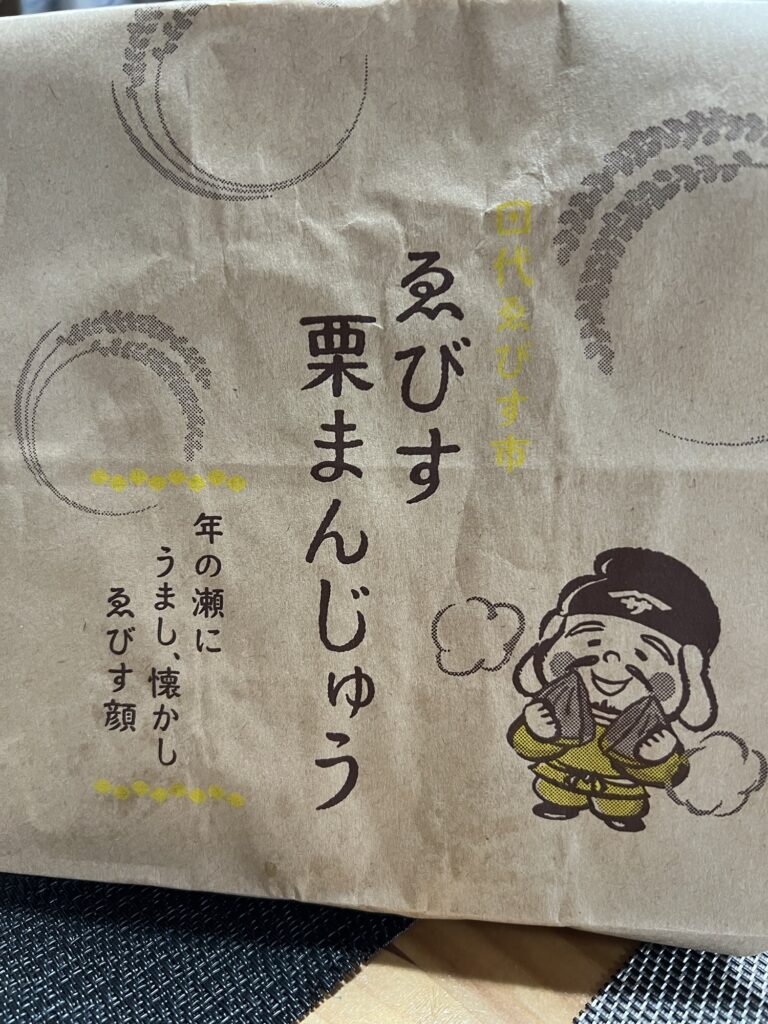 田代ゑびす市
ゑびす
栗まんじゅう
年の瀬に
うまし、懐かし
ゑびす顔